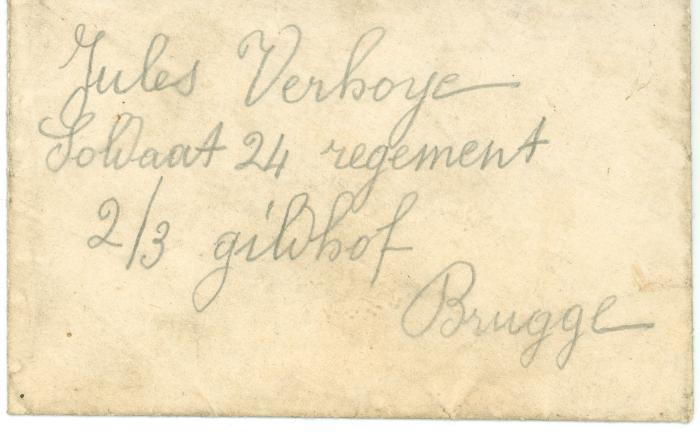 Jules Verhoye
Soldaat 24 regement
2/3 gildhof
Brugge